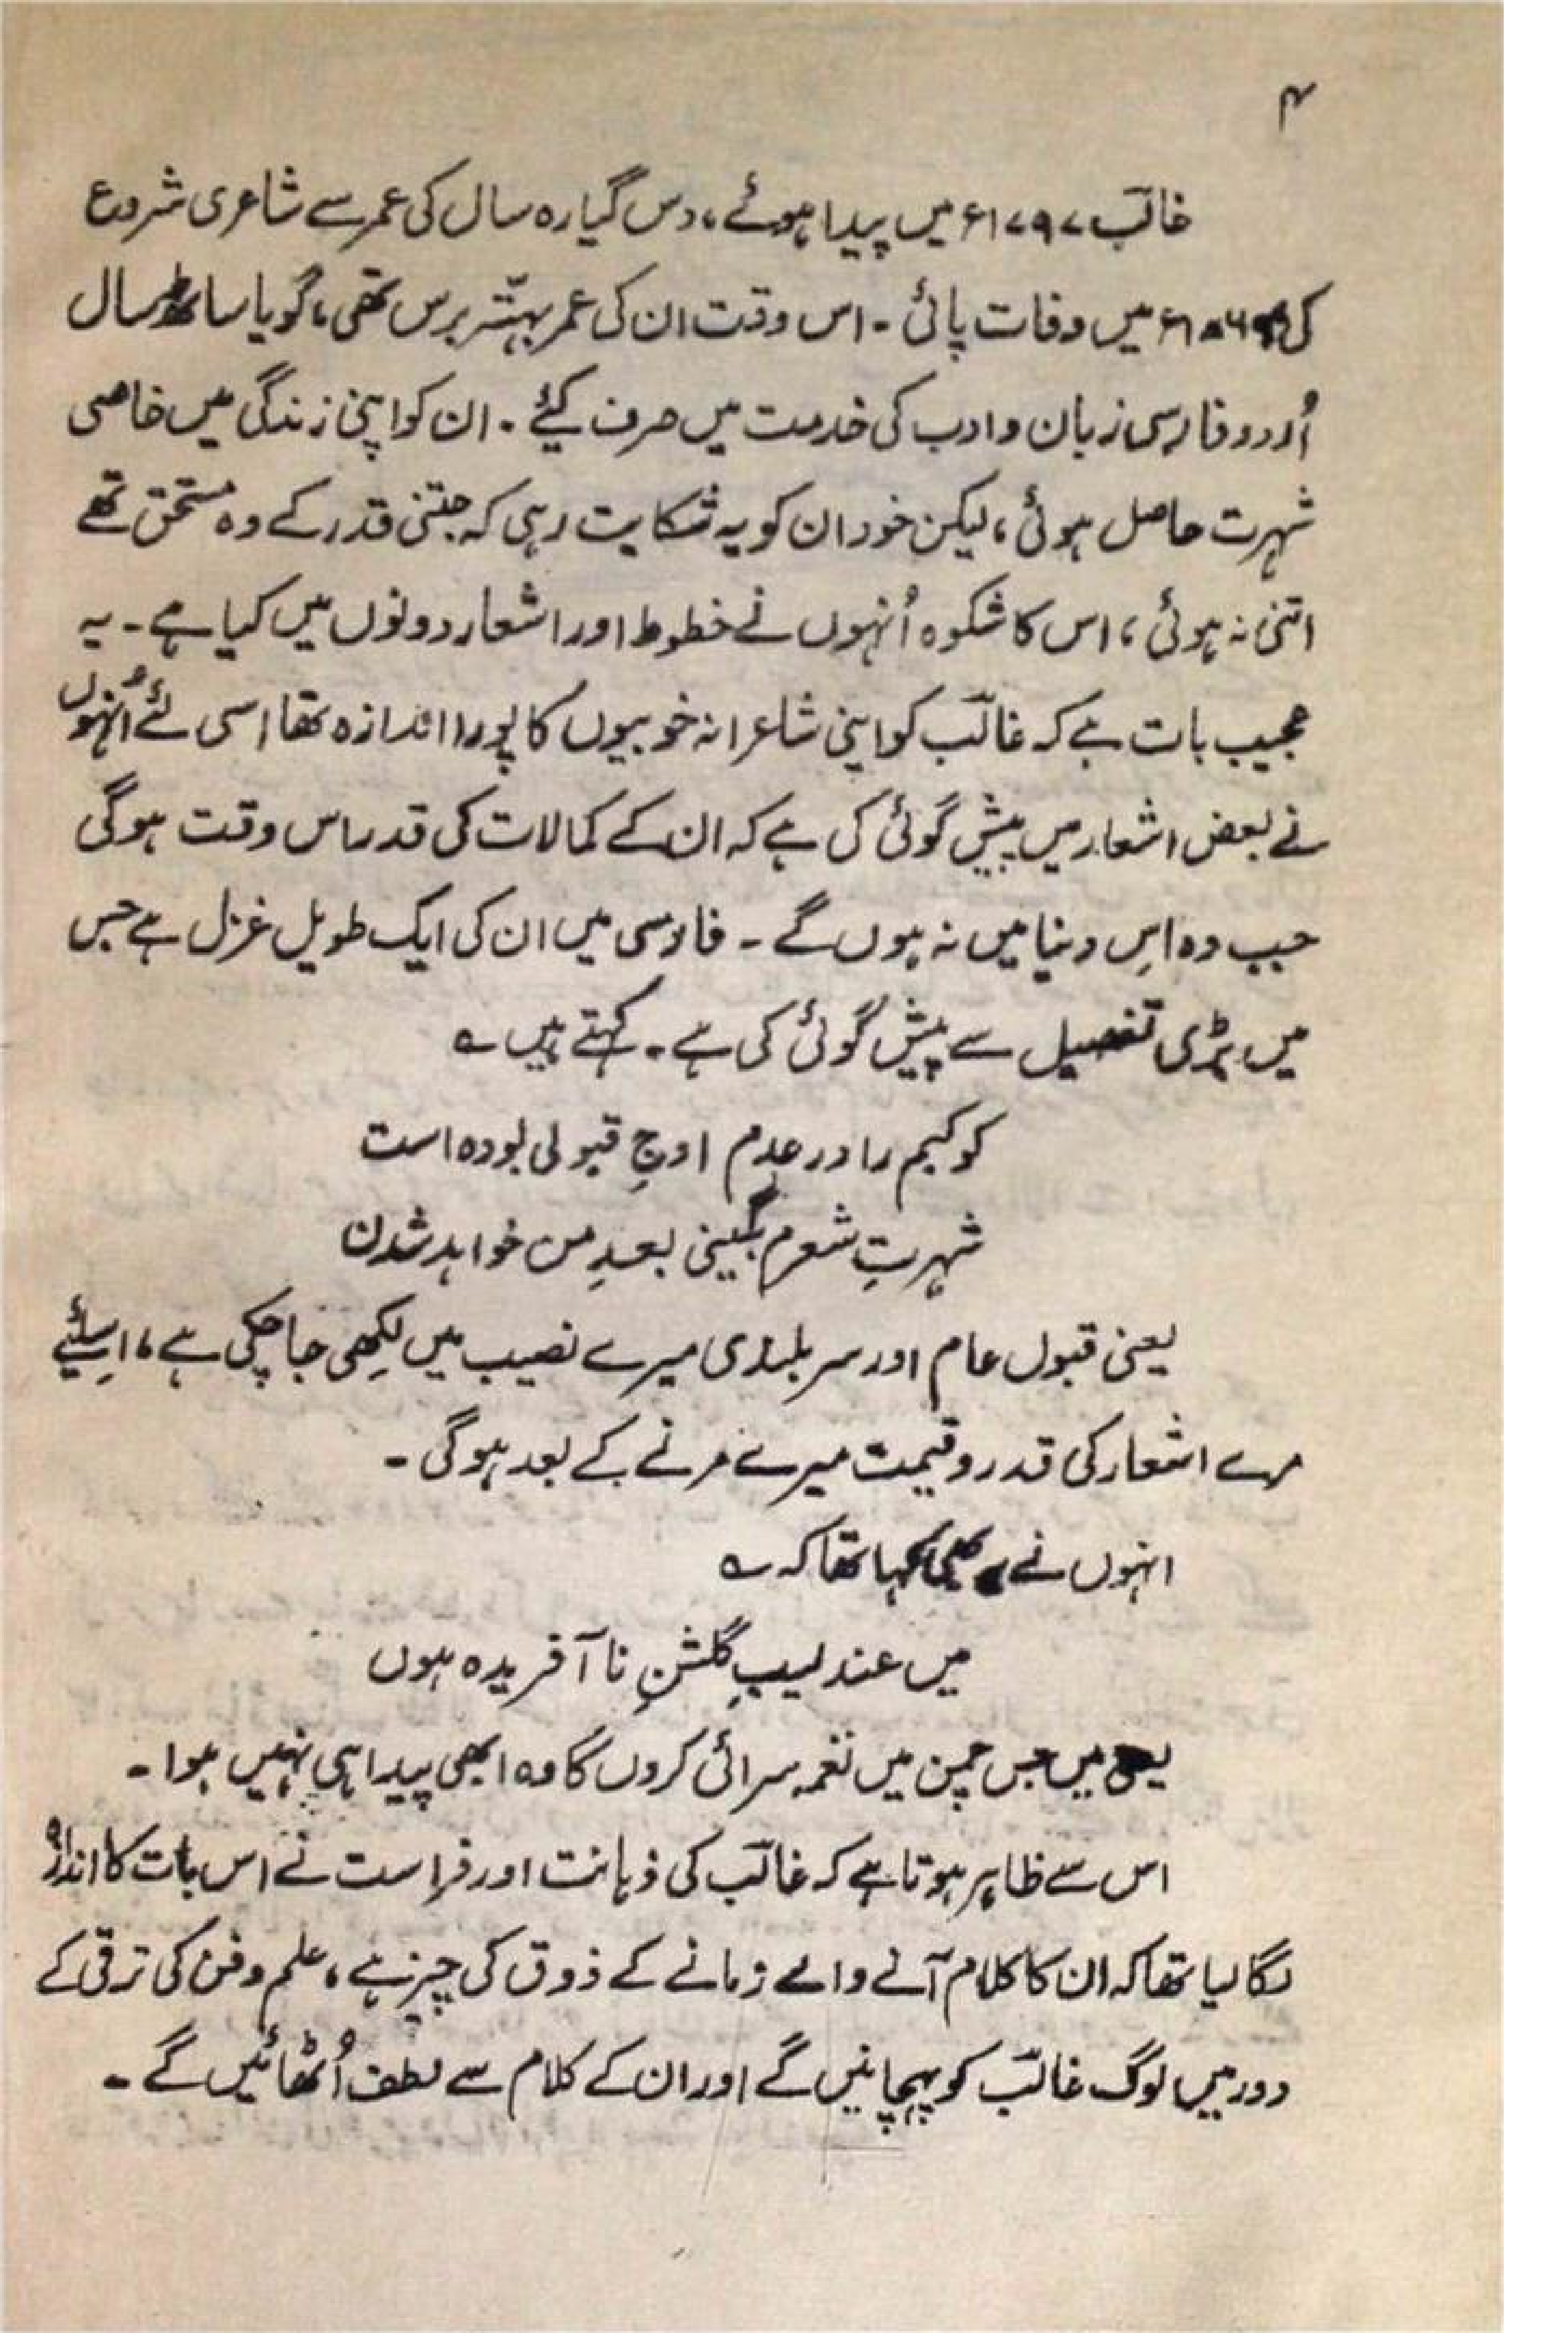 ۴
غالبؔ ۱۷۹۷ء میں پیدا ہوئے، دس گیارہ سال کی عمر سے شاعری شروع
کی ۱۸۶۹ء میں وفات پائی ۔ اس وقت ان کی عمر بہتّر برس تھی، گویا ساٹھ سال
اُردو فارسی زبان و ادب کی خدمت میں صرف کیئے ۔ ان کو اپنی زندگی میں خاصی
شہرت حاصل ہوئی، لیکن خود ان کو یہ شکایت رہی کہ جتنی قدر کے وہ مستحق تھے
اتنی نہ ہوئی، اس کا شکوہ اُنہوں نے خطوط اور اشعار دونوں میں کیا ہے ۔ یہ
عجیب بات ہے کہ غالبؔ کو اپنی شاعرانہ خوبیوں کا پورا اندازہ تھا اسی لئے اُنہوں
نے بعض اشعار میں پیش گوئی کی ہے کہ ان کے کمالات کی قدر اس وقت ہوگی
جب وہ اِس دنیا میں نہ ہوں گے ۔ فارسی میں ان کی ایک طویل غزل ہے جس
میں بڑی تفصیل سے پیش گوئی کی ہے ۔ کہتے ہیں ؎
کوکبم را در عدم اوجِ قبولی بودہ است
شہرتِ شعرم بگیتی بعدِ من خواہد شدن
یعنی قبول عام اور سربلندی میرے نصیب میں لکھی جاچکی ہے، اسلیئے
مرے اشعار کی قدر و قیمت میرے مرنے کے بعد ہوگی ۔
انہوں نے یہ بھی کہا تھا کہ ؎
میں عندلیبِ گلشنِ نا آفریدہ ہوں
یعنی میں جس چمن میں نغمہ سرائی کروں گا وہ ابھی پیدا ہی نہیں ہوا ۔
اس سے ظاہر ہوتا ہے کہ غالبؔ کی ذہانت اور فراست نے اس بات کا اندازہ
لگا لیا تھا کہ ان کا کلام آنے والے زمانے کے ذوق کی چیز ہے، علم و فن کی ترقی کے
دور میں لوگ غالبؔ کو پہچانیں گے اور ان کے کلام سے لطف اُٹھائیں گے ۔